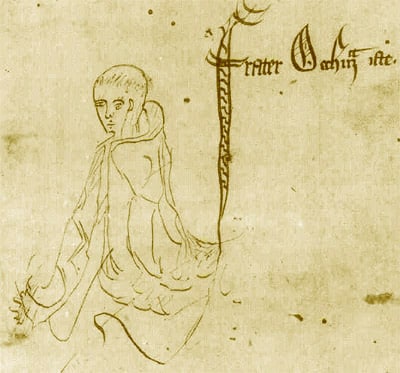 Frater Occham iste.